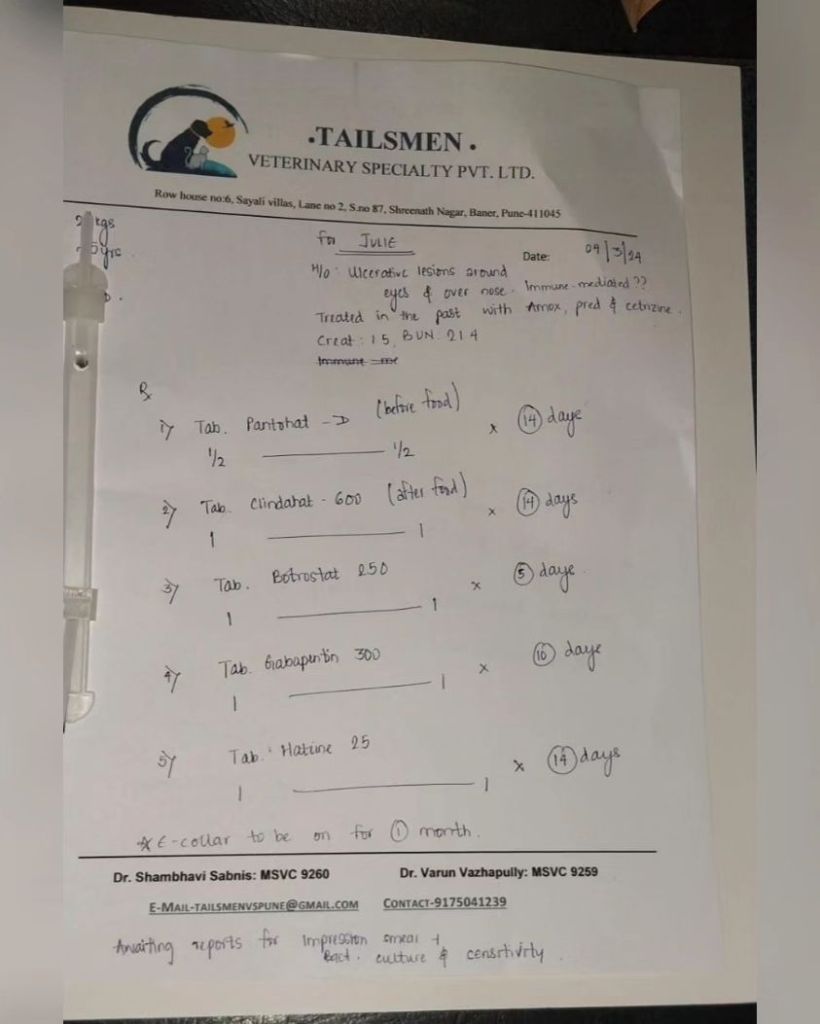 •TAILSMEN•
VETERINARY SPECIALTY PVT. LTD.
Row house no:6, Sayali villas, Lane no 2, S.no 87, Shreenath Nagar, Baner, Pune-411045
kgs
yrs
For JULIE
Date: 09/3/24
H/o: Ulcerative lesions around
eyes & over nose. Immune-mediated??
Treated in the past with Amox, pred & cetrizine.
Creat: 1.5, BUN: 21.4
Rx
1) Tab. Pantohat - D (before food) x 14 days
1/2 ——— 1/2
2) Tab. Clindahat - 600 (after food) x 14 days
1 ——— 1
3) Tab. Botrostat 250 x 5 days
1 ——— 1
4) Tab. Gabapentin 300 x 10 days
1 ——— 1
5) Tab. Hatine 25 x 14 days
1 ——— 1
* E-collar to be on for 1 month.
Dr. Shambhavi Sabnis: MSVC 9260 Dr. Varun Vazhapully: MSVC 9259
E-MAIL-TAILSMENVSPUNE@GMAIL.COM CONTACT-9175041239
Awaiting reports for Impression smear +
Bact. culture & censitivity.